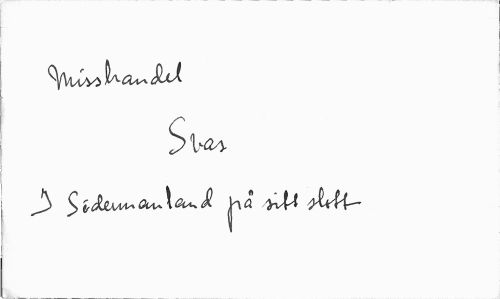 Misshandel
Svas
I Södermanland på sitt slott